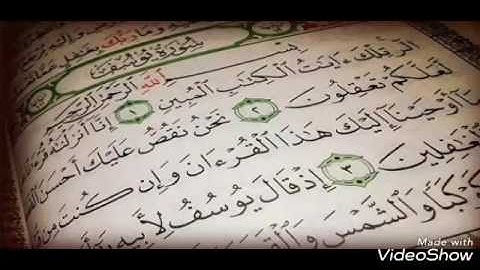 سُورَةُ يُوسُفَ
بِسْمِ اللَّهِ الرَّحْمَٰنِ الرَّحِيمِ
الٓر تِلْكَ ءَايَٰتُ ٱلْكِتَٰبِ ٱلْمُبِينِ ١ إِنَّآ أَنزَلْنَٰهُ
لَّعَلَّكُمْ تَعْقِلُونَ ٢ نَحْنُ نَقُصُّ عَلَيْكَ أَحْسَنَ
بِمَآ أَوْحَيْنَآ إِلَيْكَ هَٰذَا ٱلْقُرْءَانَ وَإِن كُنتَ مِن
ٱلْغَٰفِلِينَ ٣ إِذْ قَالَ يُوسُفُ لِأَبِيهِ
كَوْكَبًا وَٱلشَّمْسَ
Made with
VideoShow